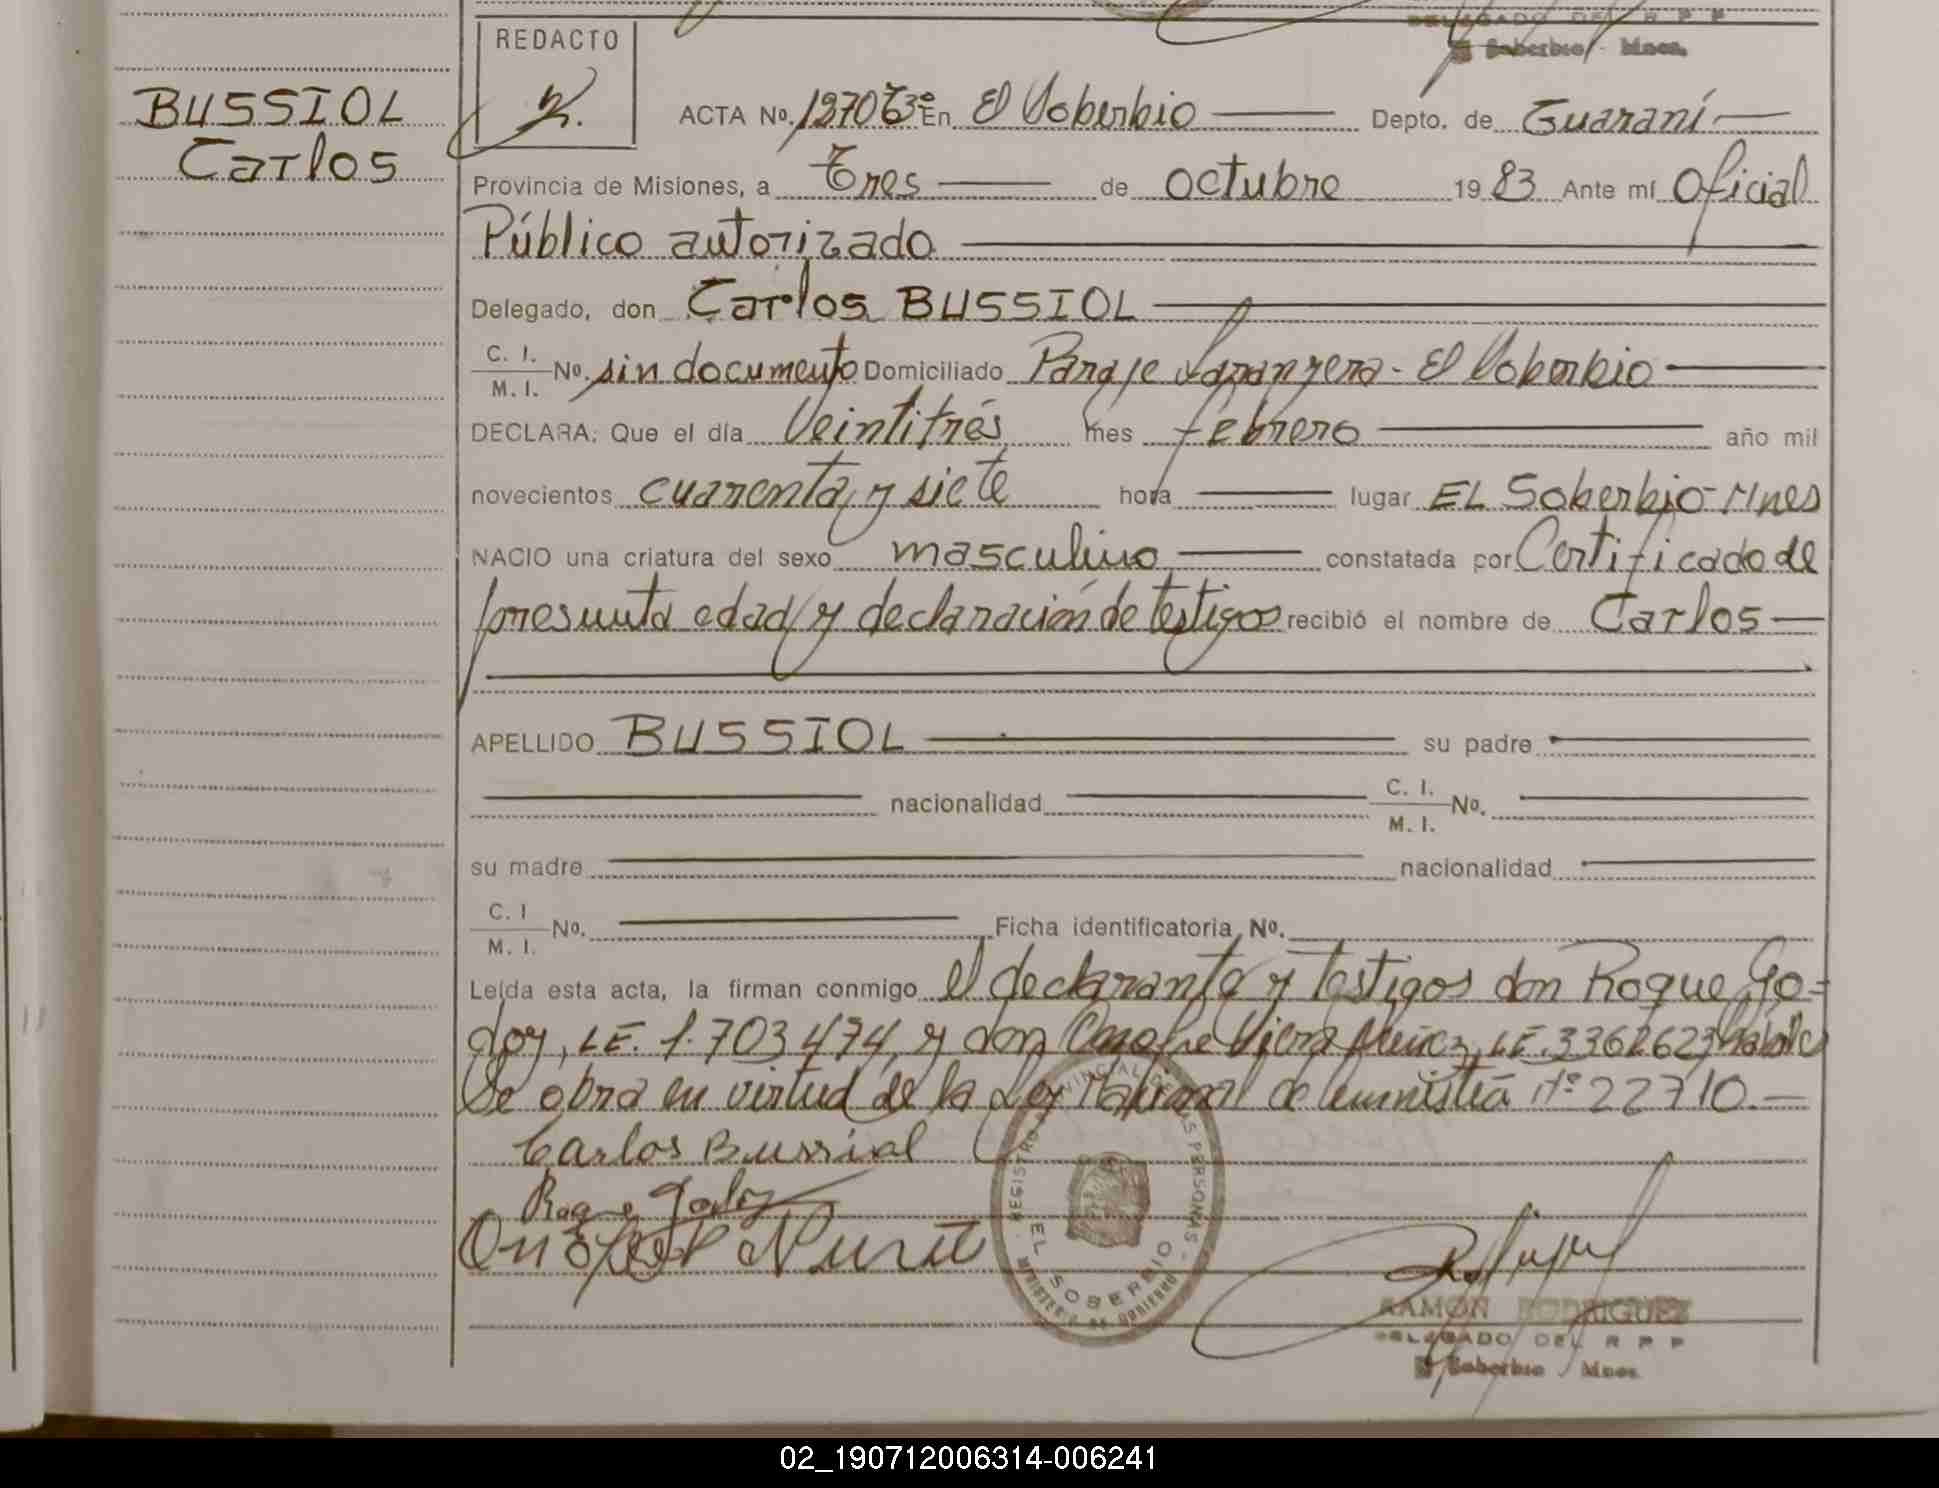 DELEGADO DEL R P P
El Soberbio - Mnes.
REDACTO
BUSSIOL
Carlos
ACTA No. En El Soberbio Depto. de Guaraní
Provincia de Misiones, a tres de octubre 1983 Ante mí Oficial
Público autorizado
Delegado, don Carlos BUSSIOL
C. I.
M. I. No. sin documento Domiciliado Paraje - El Soberbio
DECLARA: Que el día Veintitrés mes febrero año mil
novecientos cuarenta y siete hora lugar EL Soberbio - Mnes
NACIO una criatura del sexo masculino constatada por Certificado de
presunta edad y declaración de testigos recibió el nombre de Carlos
APELLIDO BUSSIOL su padre
nacionalidad C. I.
M. I. No.
su madre nacionalidad
C. I
M. I. No. Ficha identificatoria No.
Leída esta acta, la firman conmigo el declarante y testigos don Roque Go=
doy, L.E. 1.703474, y don L.E. 3362623
Se obra en virtud de la Ley Nacional de Amnistía Nº 22710.-
Carlos Bussiol
Roque Godoy
REGISTRO PROVINCIAL DE LAS PERSONAS
EL SOBERBIO
MINISTERIO DE GOBIERNO
RAMON RODRIGUEZ
DELEGADO DEL R P P
El Soberbio Mnes.
02_190712006314-006241